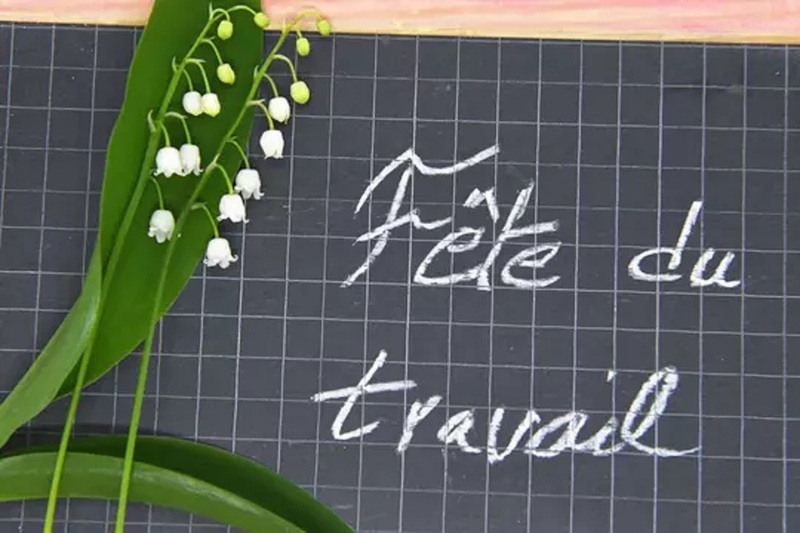 Fête du
travail